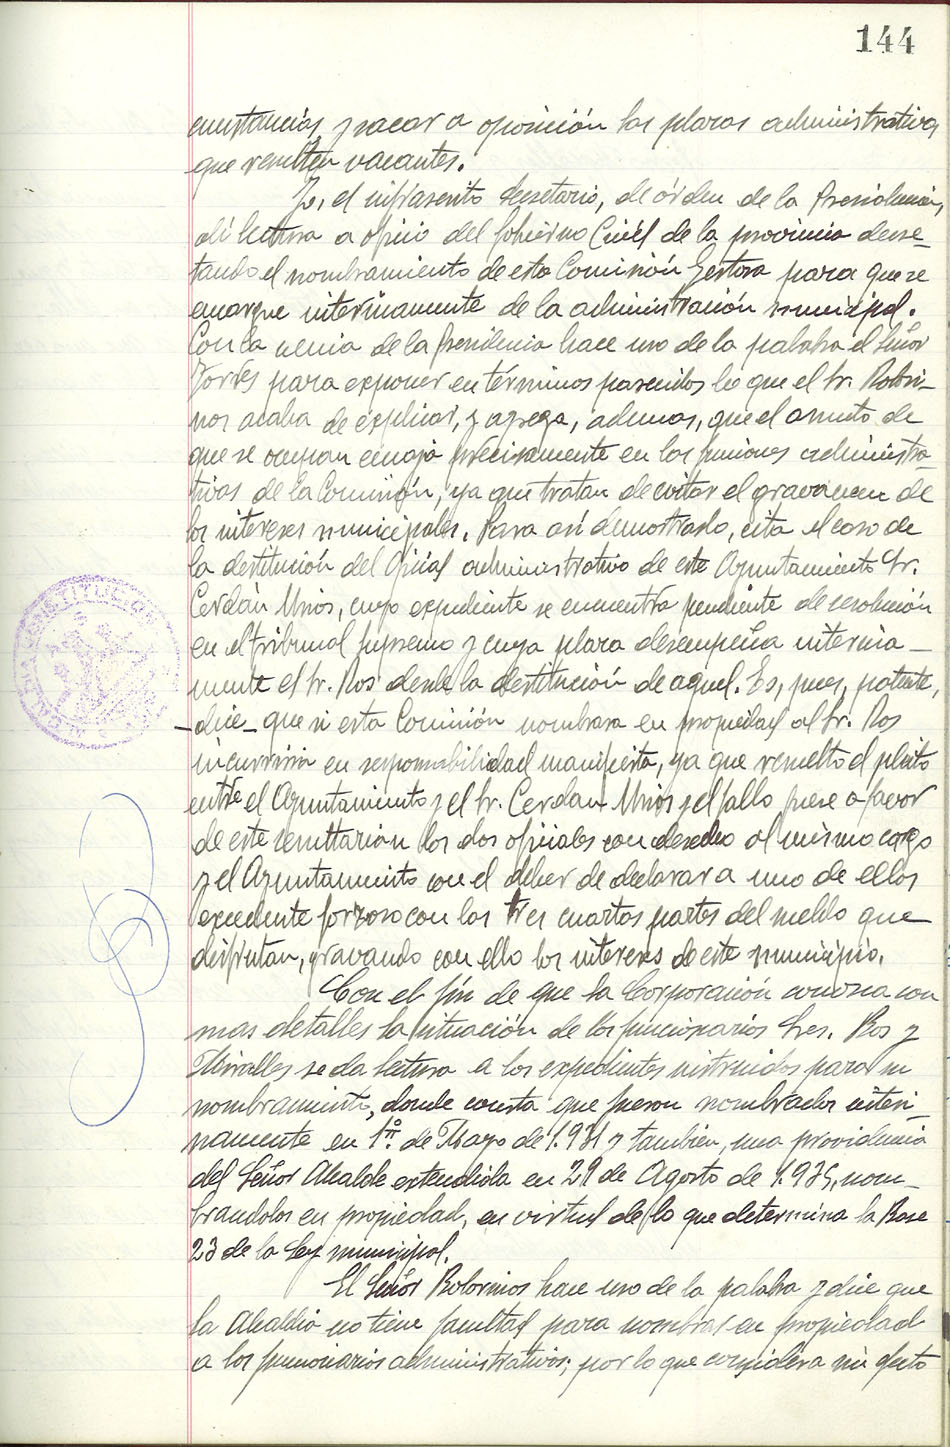 144
cunstancias, y sacar a oposición las plazas administrativas
que resulten vacantes.
Yo, el infrascrito Secretario, de órden de la Presidencia,
dí lectura a oficio del Gobierno Civil de la provincia decre-
tando el nombramiento de esta Comisión Gestora para que se
encargue interinamente de la administración municipal.
Con la venia de la Presidencia hace uso de la palabra el Señor
Torres para exponer en términos parecidos lo que el Sr. Robri-
nos acaba de explicar, y agrega, ademas, que el asunto de
que se ocupan encaja precisamente en las funciones administra-
tivas de la Comisión, ya que tratan de evitar el gravamen de
los intereses municipales. Para así demostrarlo, cita el caso de
la destitución del Oficial administrativo de este Ayuntamiento Sr.
Cerdán Mños, cuyo expediente se encuentra pendiente de resolución
en el tribunal supremo y cuya plaza desempeña interina-
mente el Sr. Ros desde la destitución de aquel. Es, pues, patente,
-dice- que si esta Comisión nombrara en propiedad al Sr. Ros
incurriria en responsabilidad manifiesta, ya que resuelto el pleito
entre el Ayuntamiento y el Sr. Cerdan Mños y el fallo fuese a favor
de este resultarian los dos oficiales con derecho al mismo cargo
y el Ayuntamiento con el deber de declarar a uno de ellos
excedente forzoso con las tres cuartas partes del sueldo que
disfrutan, gravando con ello los intereses de este municipio.
Con el fín de que la Corporación conozca con
mas detalles la situación de los funcionarios Sres. Ros y
Miralles se da lectura a los expedientes instruidos para su
nombramiento, donde consta que fueron nombrados interi-
namente en 1º. de Mayo de 1.931 y tambien, una providencia
del Señor Alcalde extendida en 29 de Agosto de 1.935, nom-
brandolos en propiedad, en virtud de lo que determina la Base
23 de la Ley municipal.
El Señor Robrinos hace uso de la palabra y dice que
la Alcaldia no tiene facultad para nombrar en propiedad
a los funcionarios administrativos; por lo que considera sin efecto